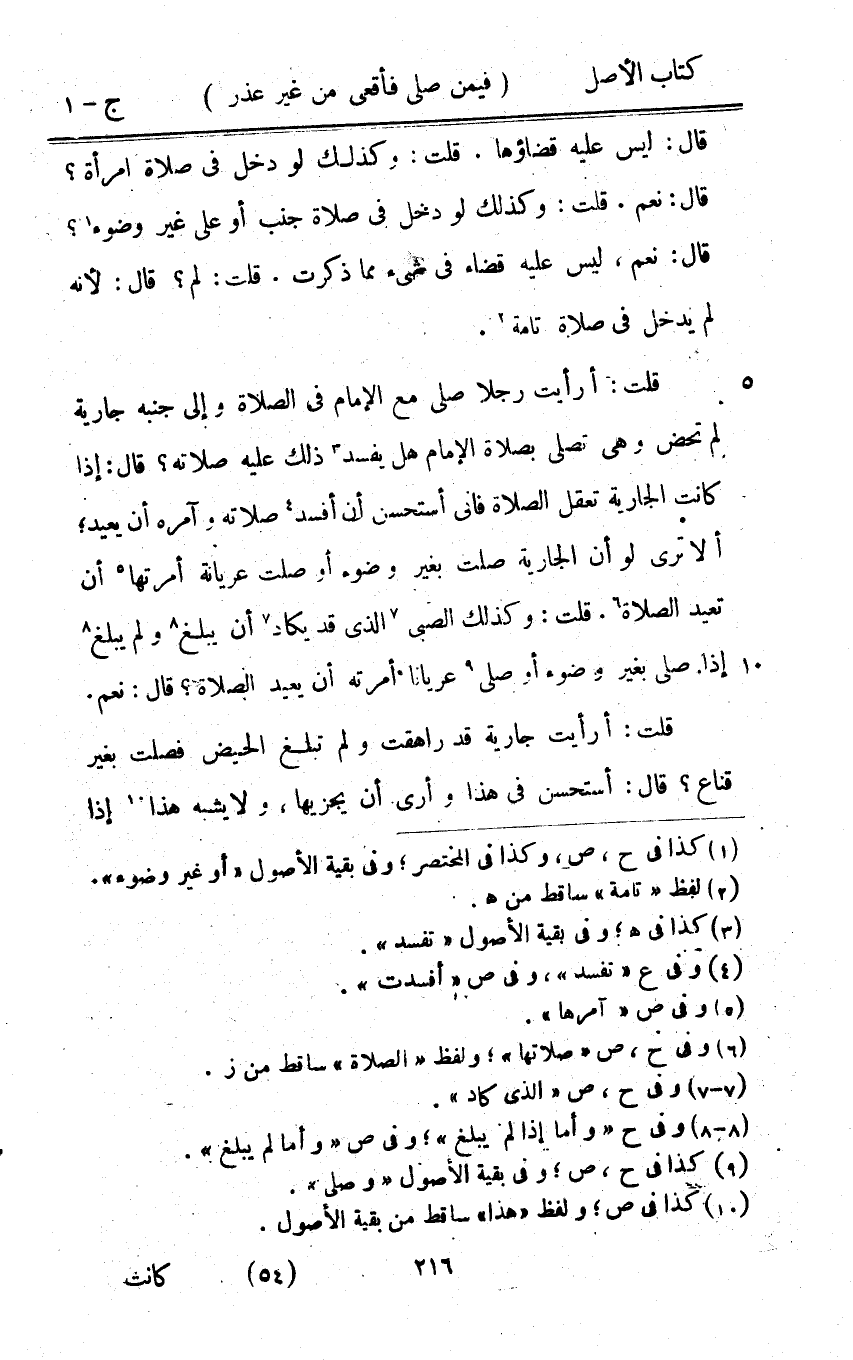 كتاب الأصل ( فيمن صلى فأقعى من غير عذر ) ج - ١
قال : ليس عليه قضاؤها . قلت : وكذلك لو دخل فى صلاة امرأة ؟
قال : نعم . قلت : وكذلك لو دخل فى صلاة جنب أو على غير وضوء١ ؟
قال : نعم ، ليس عليه قضاء فى شىء مما ذكرت . قلت : لم ؟ قال : لأنه
لم يدخل فى صلاة تامة٢ .
٥ قلت : أ رأيت رجلا صلى مع الإمام فى الصلاة و إلى جنبه جارية
لم تحض و هى تصلى بصلاة الإمام هل يفسد٣ ذلك عليه صلاته ؟ قال : إذا
كانت الجارية تعقل الصلاة فانى أستحسن أن أفسد٤ صلاته و آمره أن يعيد ؛
أ لا ترى لو أن الجارية صلت بغير وضوء أو صلت عريانة أمرتها٥ أن
تعيد الصلاة٦ . قلت : وكذلك الصبى ٧الذى قد يكاد٧ أن يبلغ٨ و لم يبلغ٨
١٠ إذا صلى بغير وضوء أو صلى٩ عريانا أمرته أن يعيد الصلاة ؟ قال : نعم .
قلت : أ رأيت جارية قد راهقت و لم تبلغ الحيض فصلت بغير
قناع ؟ قال : أستحسن فى هذا و أرى أن يجزيها ، و لا يشبه هذا١٠ إذا
(١) كذا فى ح ، ص ، وكذا فى المختصر ؛ وفى بقية الأصول « أو غير وضوء » .
(٢) لفظ « تامة » ساقط من ه .
(٣) كذا فى ه ؛ و فى بقية الأصول « تفسد » .
(٤) و فى ع « تفسد » ، و فى ص « أفسدت » .
(٥) و فى ص « آمرها » .
(٦) و فى ح ، ص « صلاتها » ؛ و لفظ « الصلاة » ساقط من ز .
(٧-٧) و فى ح ، ص « الذى كاد » .
(٨-٨) و فى ح « و أما إذا لم يبلغ » ؛ و فى ص « و أما لم يبلغ » .
(٩) كذا فى ح ، ص ؛ و فى بقية الأصول « و صلى » .
(١٠) كذا فى ص ؛ و لفظ « هذا » ساقط من بقية الأصول .
٢١٦ (٥٤) كانت